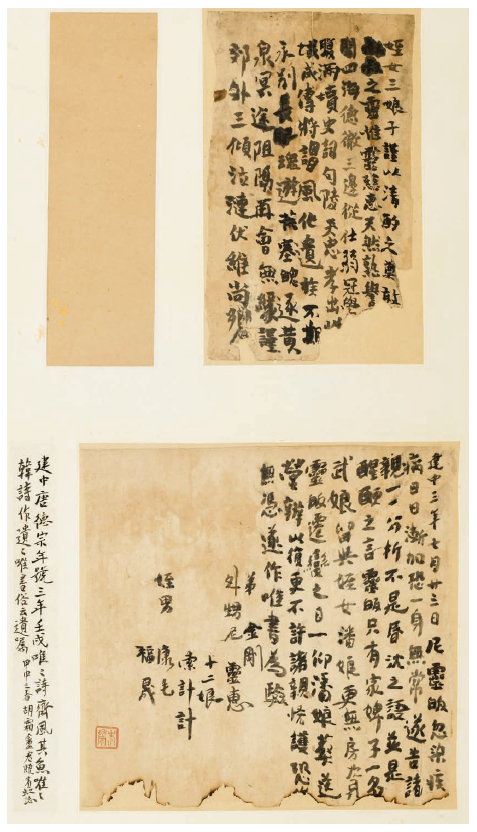 姪女三娘子謹以清酌之奠敢
之靈惟靈慈惠天然敦學
聞四海德徹三邊從仕弱冠學
覽兩墳史詞句陵天忠孝出此
城咸傳將謂風化貴族不期
永別長眠魂遊荒塞魄逐黃
泉冥途阻隔再會無緣謹
郊外三傾泣漣伏維尚饗
建中三年七月廿三日尼靈皈忽染疾
病日日漸加恐一身無常遂告諸
親一一分析不是昏沈之語並是
醒甦之言靈皈只有家婢子一名
武娘留與姪女潘娘更無房資
靈皈遷變之日一仰潘娘葬送
營辦以後更不許諸親恡護恐後
無憑遂作唯書為驗
弟金剛
外甥尼靈惠
十二娘
索計計
姪男康毛
福晟
建中唐德宗年號三年壬戌唯唯詩齊風其魚唯唯
韓詩作遺遺唯書俗云遺囑甲申三春胡霜盦